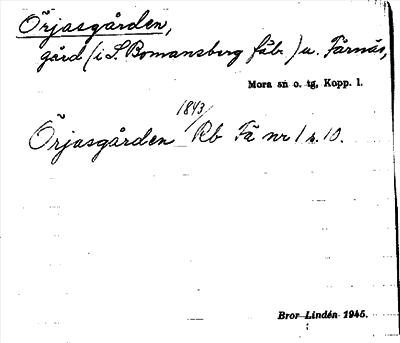 Örjasgården,
gård (i S. Bomansberg fäb.) u. Färnäs,
Mora sn o. tg, Kopp. l.
1843/
Örjasgården Rb Fä nr 1 s. 10.
Bror Lindén 1945.